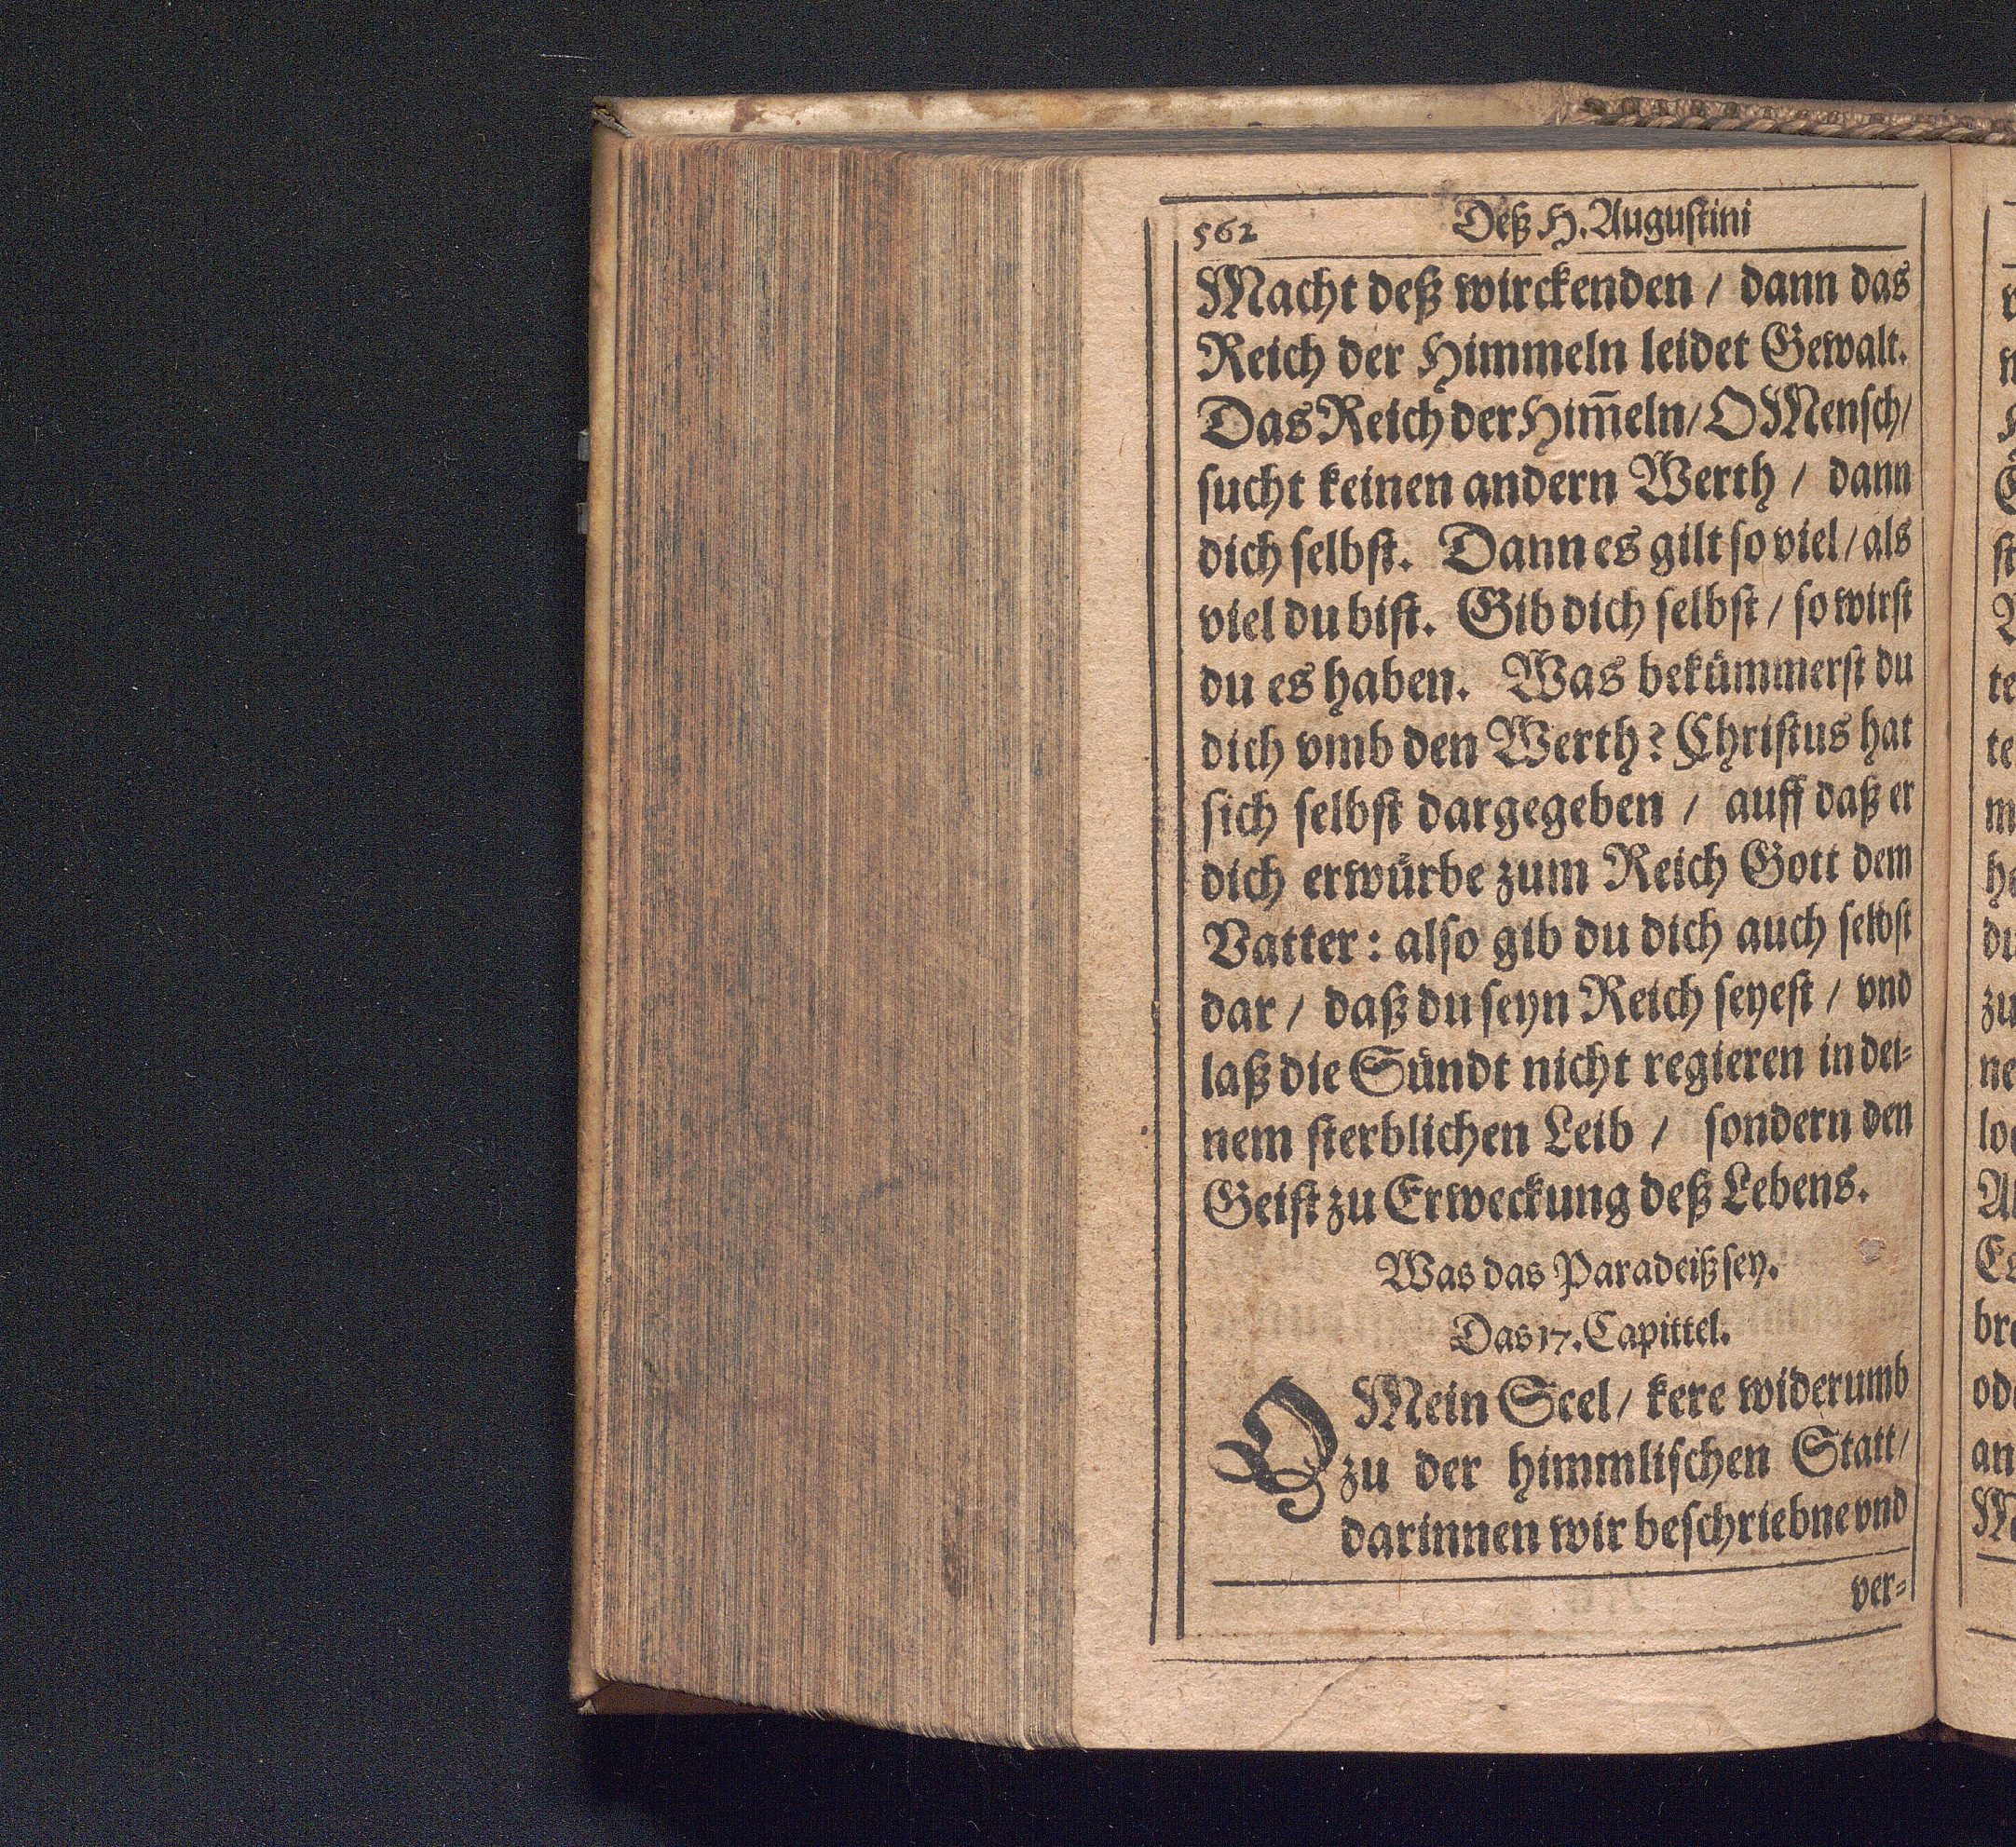 562 Deß H. Augustini
Macht deß wirckenden / dann das
Reich der Himmeln leidet Gewalt.
Das Reich der Him̅eln / O Mensch /
sucht keinen andern Werth / dann
dich selbst. Dann es gilt so viel / als
viel du bist. Gib dich selbst / so wirst
du es haben. Was bekümmerst du
dich vmb den Werth? Christus hat
sich selbst dargegeben / auff daß er
dich erwürbe zum Reich Gott dem
Vatter: also gib du dich auch selbst
dar / daß du seyn Reich seyest / vnd
laß die Sündt nicht regieren in dei-
nem sterblichen Leib / sondern den
Geist zu Erweckung deß Lebens.
Was das Paradeiß sey.
Das 17. Capittel.
O Mein Seel / kere widerumb
zu der himmlischen Statt /
darinnen wir beschriebne vnd
ver-